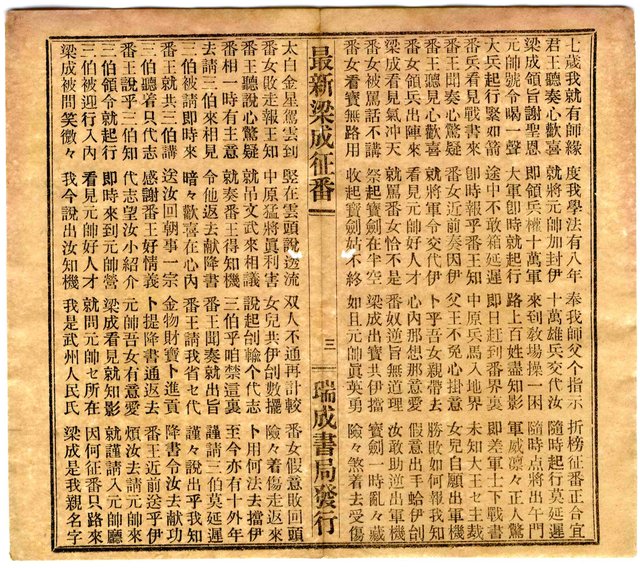 七歲我就有師緣 度我學法有八年 奉我師父个指示 折榜征番正合宜
君王聽奏心歡喜 就將元帥加封伊 十萬雄兵交代汝 隨時起行莫延遲
梁成領旨謝聖恩 即領兵權十萬軍 來到敎場操一困 隨時点將出午門
元帥號令喝一聲 大軍卽時就起行 路上百姓盡知影 軍威凜々正人驚
大兵起行緊如箭 途中不敢箱延遲 即日赶到番界裏 即差軍士下戰書
番兵看見戰書來 卽時報乎番王知 中原兵馬入地界 未知大王乜主裁
番王聞奏心驚疑 番女近前奏因伊 父王不免心掛意 女兒自願出軍機
番王聽見心歡喜 就將軍令交代伊 卜乎吾女親帶去 勝敗如何報我知
番女領兵出陣來 看見元帥好人才 心內那想那意愛 假意出手蛤伊刣
梁成看見氣冲天 就罵番女恰不是 番奴逆旨無道理 汝敢助逆出軍機
番女被罵話不講 祭起寶劍在半空 梁成出寶共伊擋 寶劍一時亂々藏
番女看寶無路用 收起寶劍姑不終 如且元帥眞英勇 險々煞着去受傷
最新梁成征番 三 瑞成書局發行
太白金星駕雲到 竪在雲頭說透流 双人不通再計較 番女假意敗回頭
番女敗走報王知 中原猛將眞利害 女兒共伊刣數擺 險々着傷走返來
番王聽說心驚疑 就吊文武來相議 說起刣輸个代志 卜用何法去擋伊
番相一時有主意 就奏番王得知機 三伯乎咱禁這裏 至今亦有十外年
去請三伯來相見 令他返去献降書 番王聞奏就出旨 謹請三伯莫延遲
三伯被請即時來 暗々歡喜在心內 番王請我省乜代 謹々說出乎我知
番王就共三伯講 送汝回朝事一宗 金物財寶卜進貢 降書令汝去献功
三伯聽着只代志 感謝番王好情義 卜提降書通返去 番王近前送乎伊
番王說乎三伯知 代志望汝小紹介 元帥吾女有意愛 煩汝去請元帥來
三伯領令就起行 即時來到元帥營 梁成看見就知影 就謹請入元帥廳
三伯被迎行入內 看見元帥好人才 就問元帥乜所在 因何征番只路來
梁成被問笑微々 我今說出汝知機 我是武州人民氏 梁成是我親名字